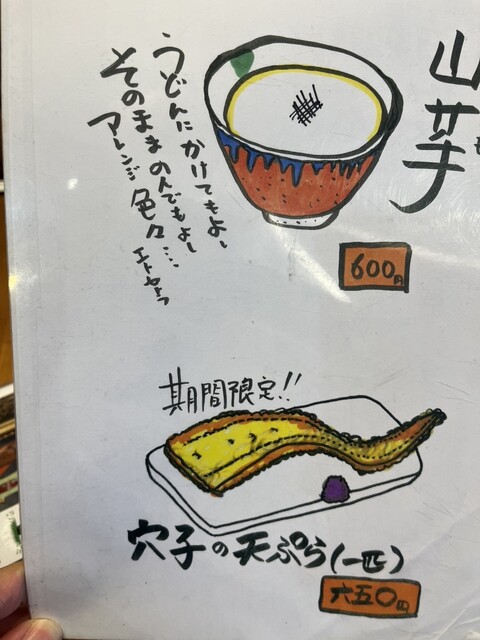 山芋
うどんにかけてもよし
そのままのんでもよし
アレンジ色々…
600円
期間限定!!
穴子の天ぷら(一匹)
六五〇円